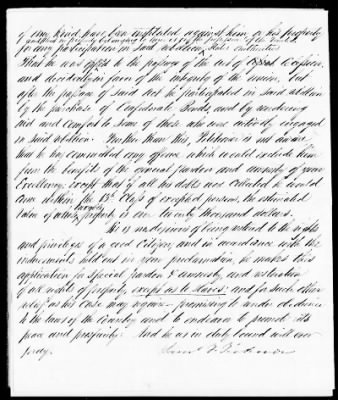 of any kind have been instituted against him or his property
for any participation in said rebellion,
That he was opposed to the passage of the act of Secession
and decidedly in favor of the integrity of the union. But
after the passage of said act he participated in said rebellion
by the purchase of Confederate Bonds, and by rendering
aid and comfort to some of those who were actively engaged
in said rebellion. Further than this, Petitioner is not aware
that he has committed any offence which would exclude him
from the benefits of the general pardon and amnesty of your
Excellency; except that if all his debts was collected he would
come within the 13th Clap of excepted persons, the estimated
value of taxable property is over twenty thousand dollars.
He is desirous of being restored to the rights
and privileges of a good Citizen, and in accordance with the
inducements held out in your proclamation, he makes this
application for special pardon & amnesty and restoration
of all rights of property, except as to slaves; and for such other
relief as his case may require— promising to render obedience
to the laws of the country and to endeavor to promote its
peace and prosperity. And he as in duty bound will ever
pray.